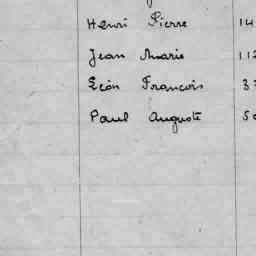 Henri Pierre 14
Jean Marie 11
Léon François 3
Paul Auguste 5